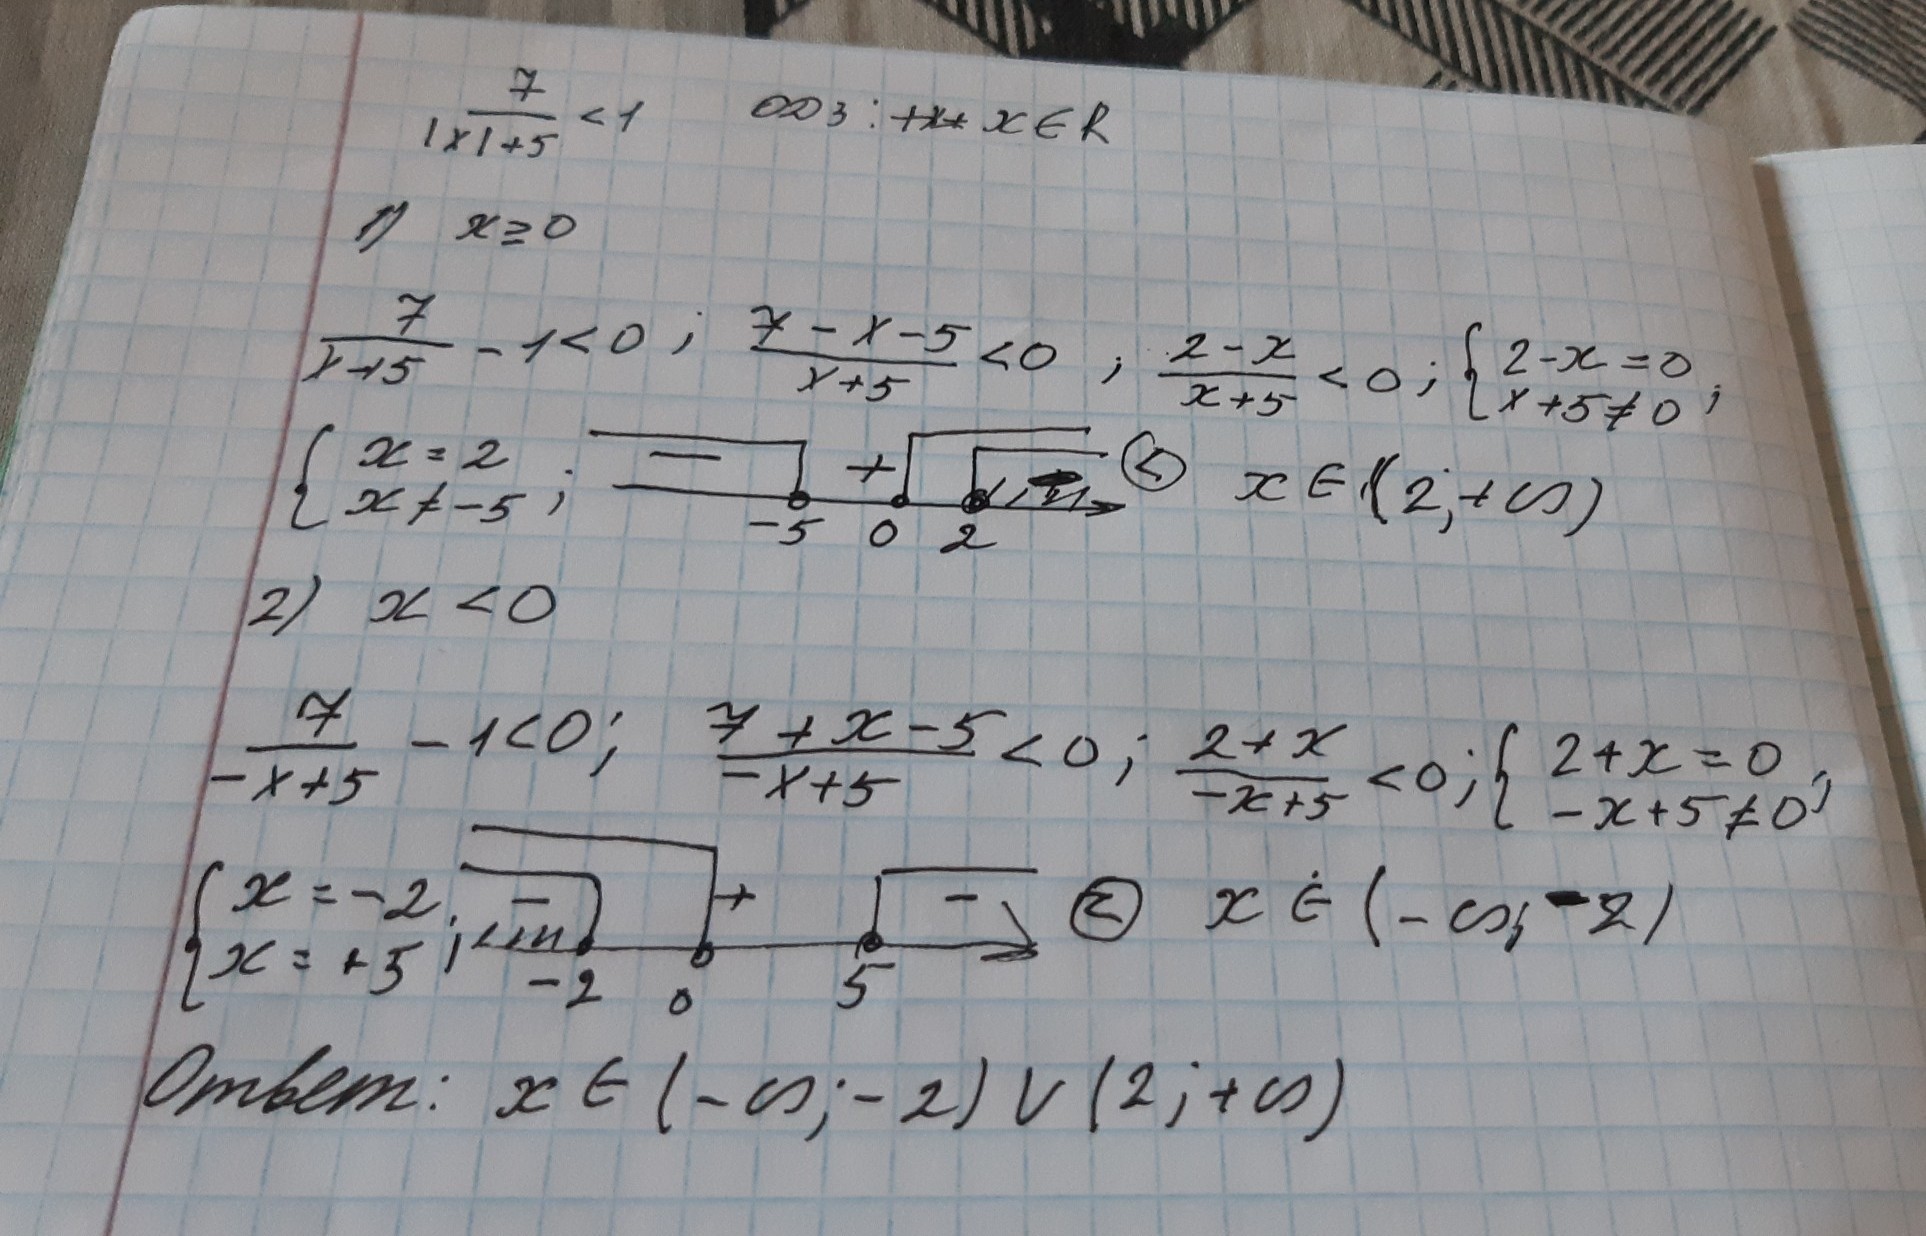 7/(|x|+5) < 1   ОДЗ: x ∈ R
1) x ≥ 0
7/(x+5) - 1 < 0 ; (7-x-5)/(x+5) < 0 ; (2-x)/(x+5) < 0 ; { 2-x=0 x+5≠0 ;
{ x=2 x≠-5 ; − + -5 0 2 < x ∈ (2;+∞)
2) x < 0
7/(-x+5) - 1 < 0 ; (7+x-5)/(-x+5) < 0 ; (2+x)/(-x+5) < 0 ; { 2+x=0 -x+5≠0 ;
{ x=-2 x=+5 ; − + − -2 0 5 < x ∈ (-∞;-2)
Ответ: x ∈ (-∞;-2) ∪ (2;+∞)